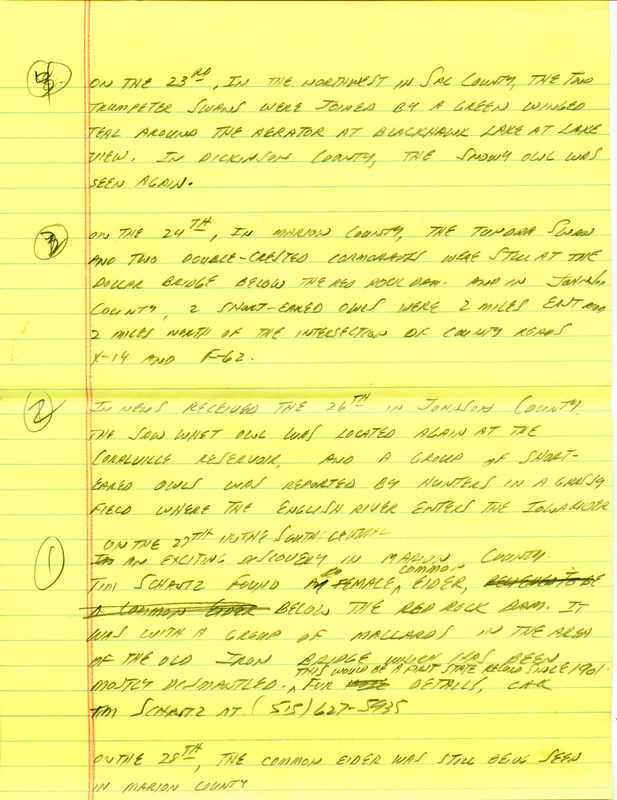 ON THE 23RD, IN THE NORTHWEST IN SAC COUNTY, THE TWO
TRUMPETER SWANS WERE JOINED BY A GREEN WINGED
TEAL AROUND THE AERATOR AT BLACKHAWK LAKE AT LAKE
VIEW. IN DICKINSON COUNTY, THE SNOWY OWL WAS
SEEN AGAIN.
3
ON THE 24TH, IN MARION COUNTY, THE TUNDRA SWAN
AND TWO DOUBLE-CRESTED CORMORANTS WERE STILL AT THE
DOLLAR BRIDGE BELOW THE RED ROCK DAM. AND IN JOHNSON
COUNTY, 2 SHORT-EARED OWLS WERE 2 MILES EAST AND
2 MILES NORTH OF THE INTERSECTION OF COUNTY ROADS
X-14 AND F-62.
2
IN NEWS RECEIVED THE 26TH IN JOHNSON COUNTY,
THE SAW WHET OWL WAS LOCATED AGAIN AT THE
CORALVILLE RESERVOIR, AND A GROUP OF SHORT-
EARED OWLS WAS REPORTED BY HUNTERS IN A GRASSY
FIELD WHERE THE ENGLISH RIVER ENTERS THE IOWA RIVER
ON THE 27TH IN THE SOUTH CENTRAL
1
AN EXCITING DISCOVERY IN MARION COUNTY.
TIM SCHANTZ FOUND A FEMALE COMMON EIDER, BELIEVED TO BE
A COMMON EIDER BELOW THE RED ROCK DAM. IT
WAS WITH A GROUP OF MALLARDS IN THE AREA
OF THE OLD IRON BRIDGE WHICH HAS BEEN
MOSTLY DISMANTLED. THIS WOULD BE A FIRST STATE RECORD SINCE 1901. FOR DETAILS, CALL
TIM SCHANTZ AT (515) 627-5935
ON THE 28TH, THE COMMON EIDER WAS STILL BEING SEEN
IN MARION COUNTY